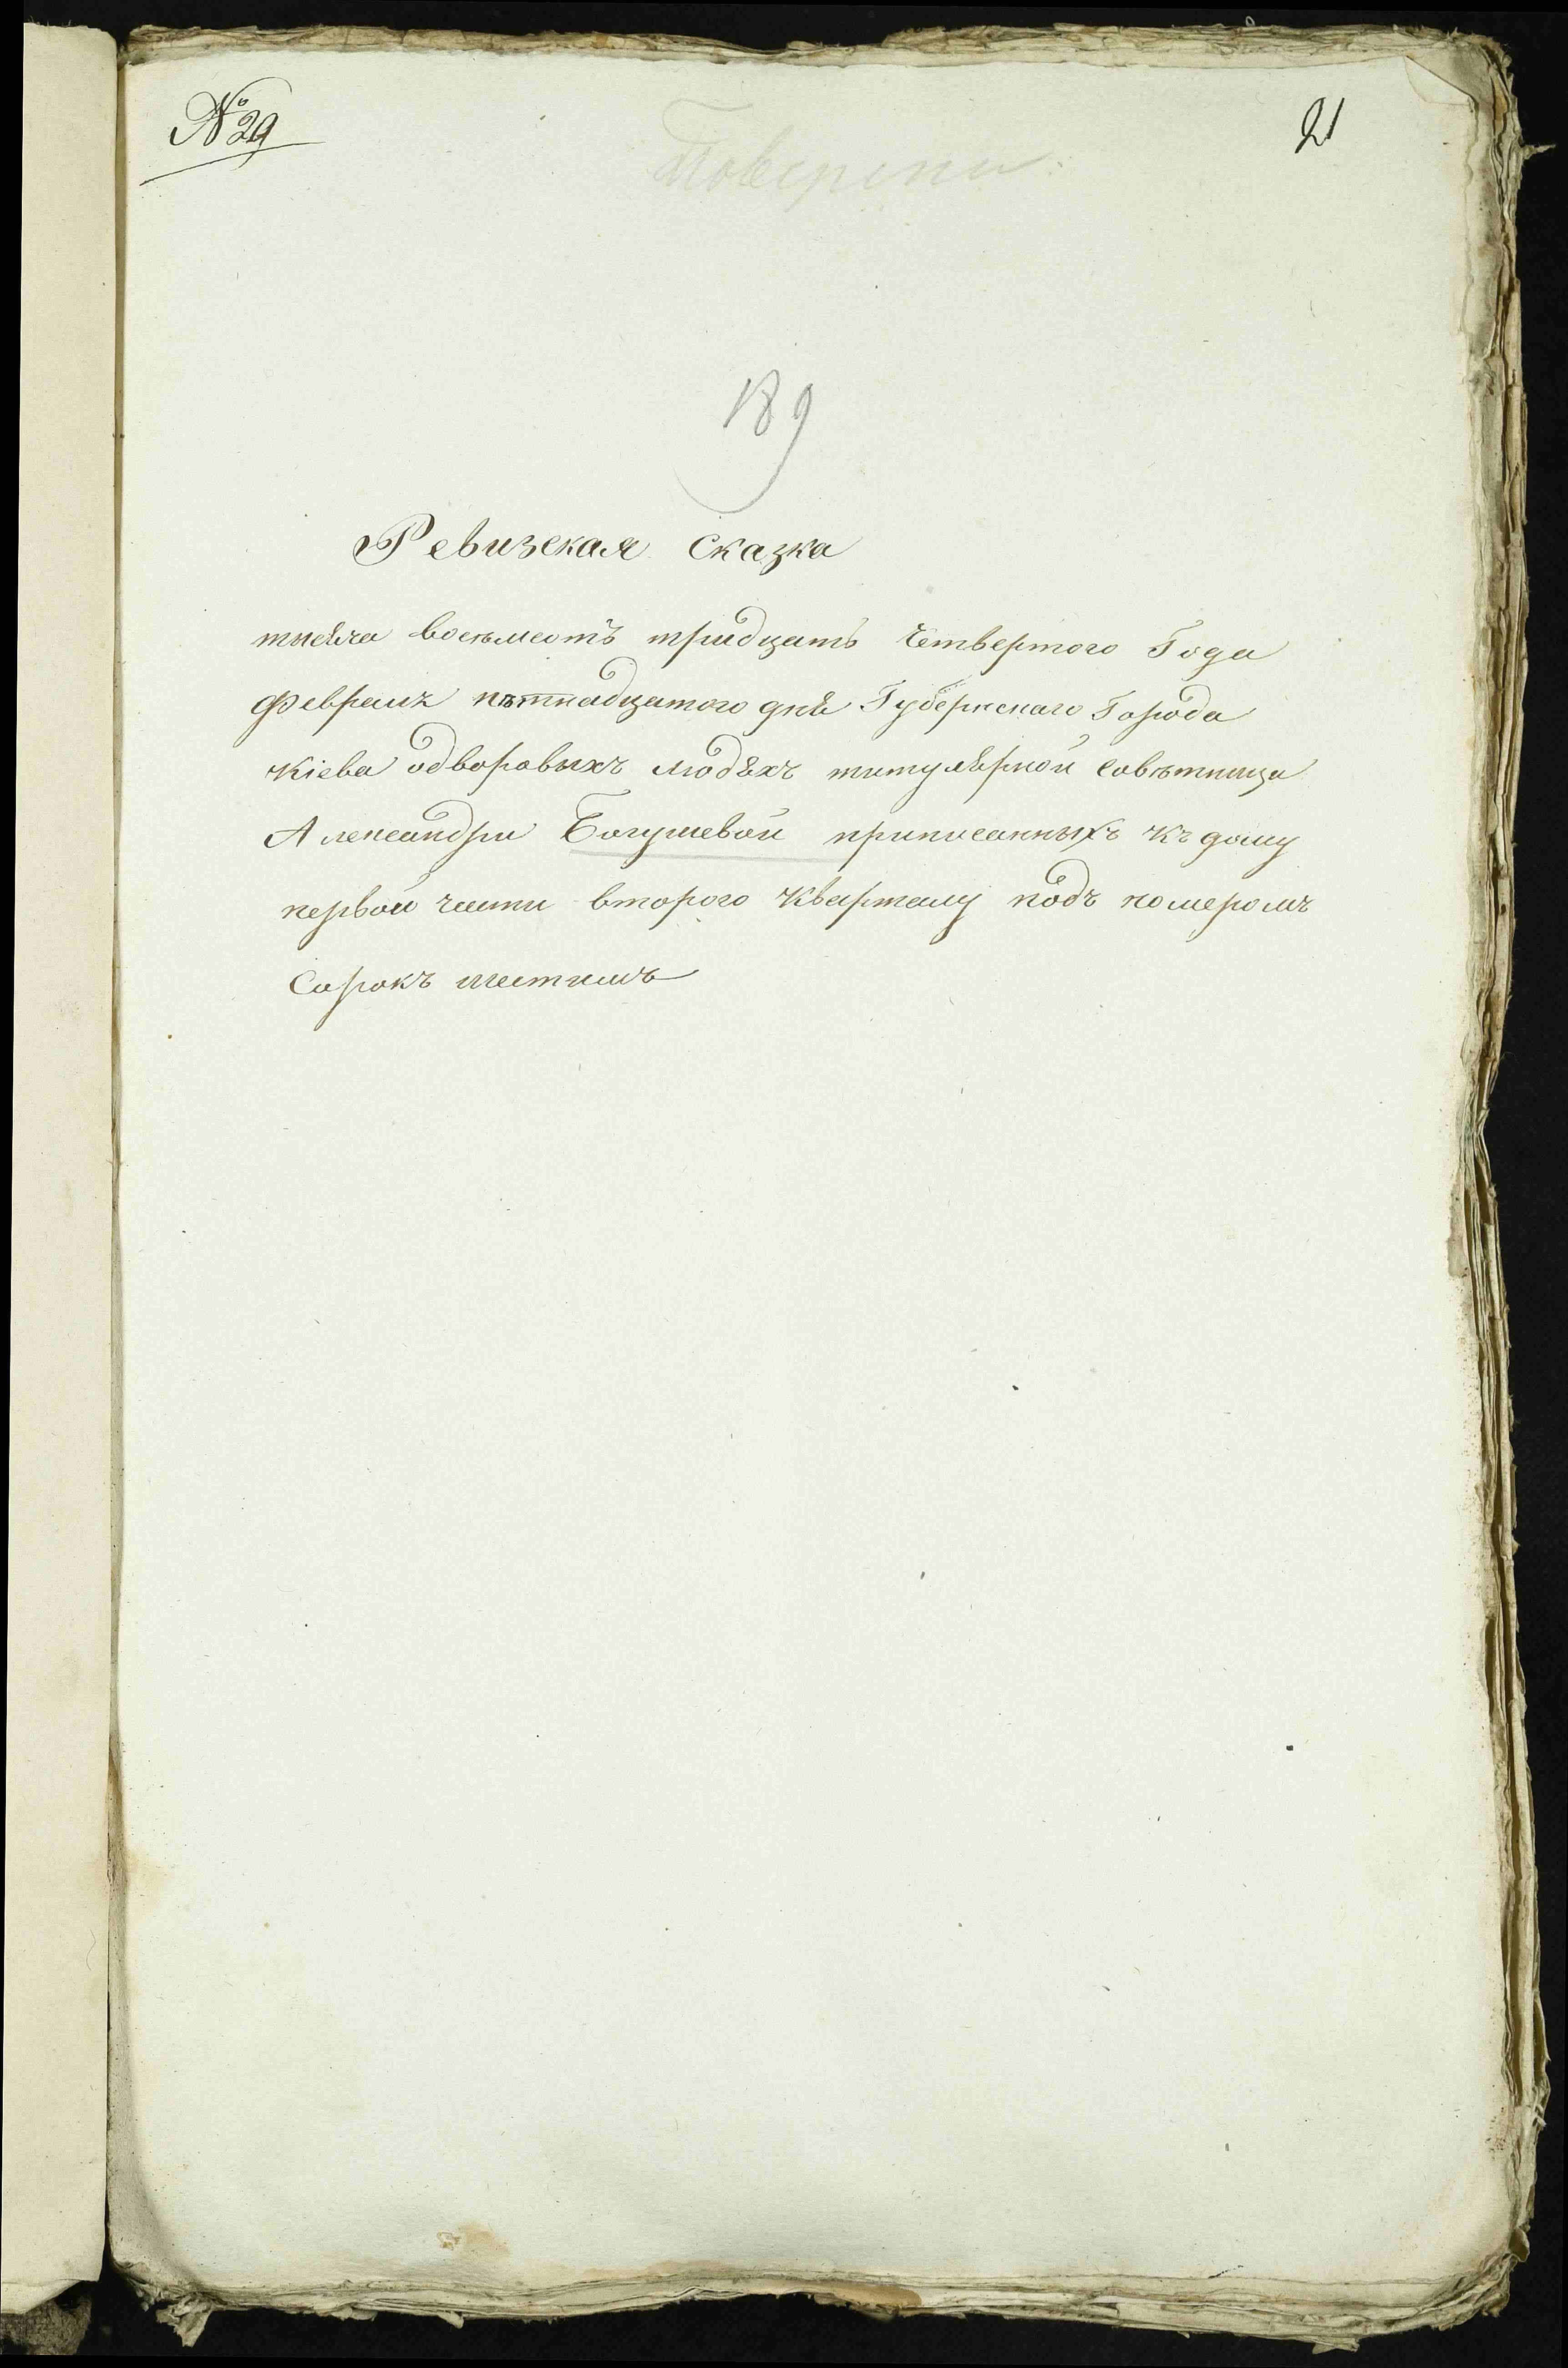 № 29
21
Поверено
189
Ревизская Сказка
тысяча восемьсотъ тридцать Четвертого Года
февраля пѣтнадцатого дня Губернскаго Города
Кіева одворовыхъ людѣхъ титулярной Совѣтница
Александри Богушевой приписанныхъ къ дому
первой части второго Кварталу подъ номеромъ
Сорокъ шестимъ